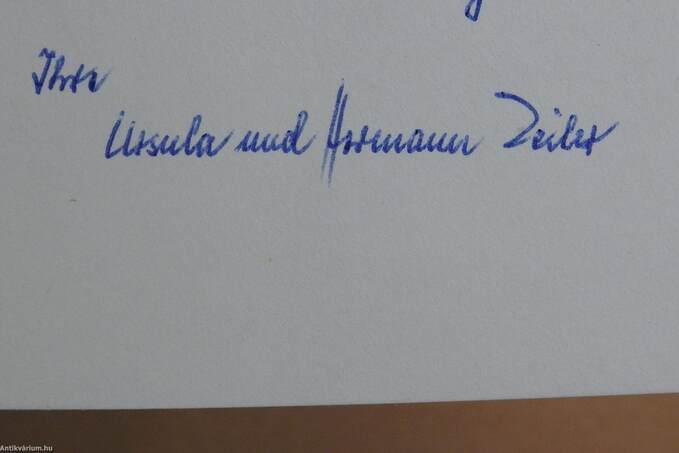 Ihre
Ursula und Hermann Zeiler
Antikvárium.hu